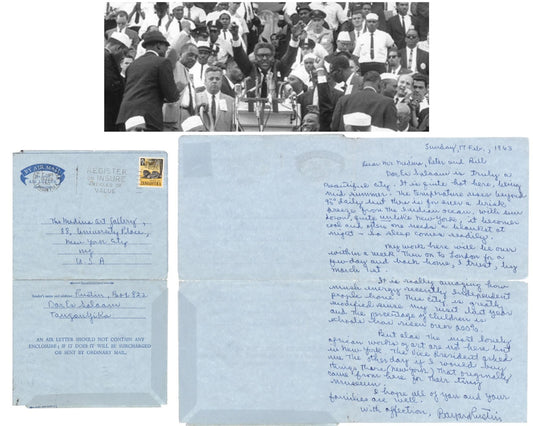 BY AIR MAIL
REGISTER
OR INSURE
ARTICLES OF
VALUE
The Medina Art Gallery,
88, University Place,
New York City
NY
U.S.A
Sender's name and address: Rustin, Box 822
Dar Es Salaam
Tanganyika
AN AIR LETTER SHOULD NOT CONTAIN ANY
ENCLOSURE; IF IT DOES IT WILL BE SURCHARGED
OR SENT BY ORDINARY MAIL.
Sunday, 17 Feb., 1963
Dear Mr Medina, Peter and Bill
Dar Es Salaam is truly a
beautiful city. It is quite hot here, being
mid summer. The temperature rises beyond
90° daily but there is for ever a brisk
breeze from the Indian ocean. With sun
down, quite unlike New York, it becomes
cool and often one needs a blanket at
night - so sleep comes readily.
My work here will be over
within a week. Then on to London for a
few days and back home, I trust, by
March 1st.
It is really amazing how
much energy recently independent
people have. This city is greatly
modified since my visit last year
and the percentage of children in
schools has risen over 200%.
But alas the most lovely
african works of art are not here but
in New York. The Vice President asked
me the other day if I would buy
things there (New York) that originally
came from here for their tiny
museum.
I hope all of you and your
families are well.
With affection, Bayard Rustin